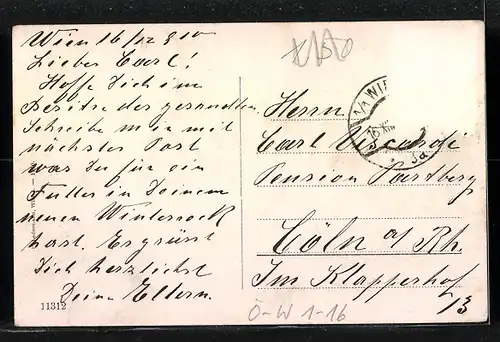 Wien 16/12 910
Lieber Carl!
Hoffe Dich im
Besitze der gesandten
Schreibe mir mit
nächster Post
was Du für ein
Futter in Deinem
neuen Winterrock
hast. Es grüsst
Dich herzlichst
Deine Eltern.
11312
Herrn
Carl Viscardi
Pension
Cöln a/ Rh.
Im Klapperhof
13
WIEN
Ö-W 1-16